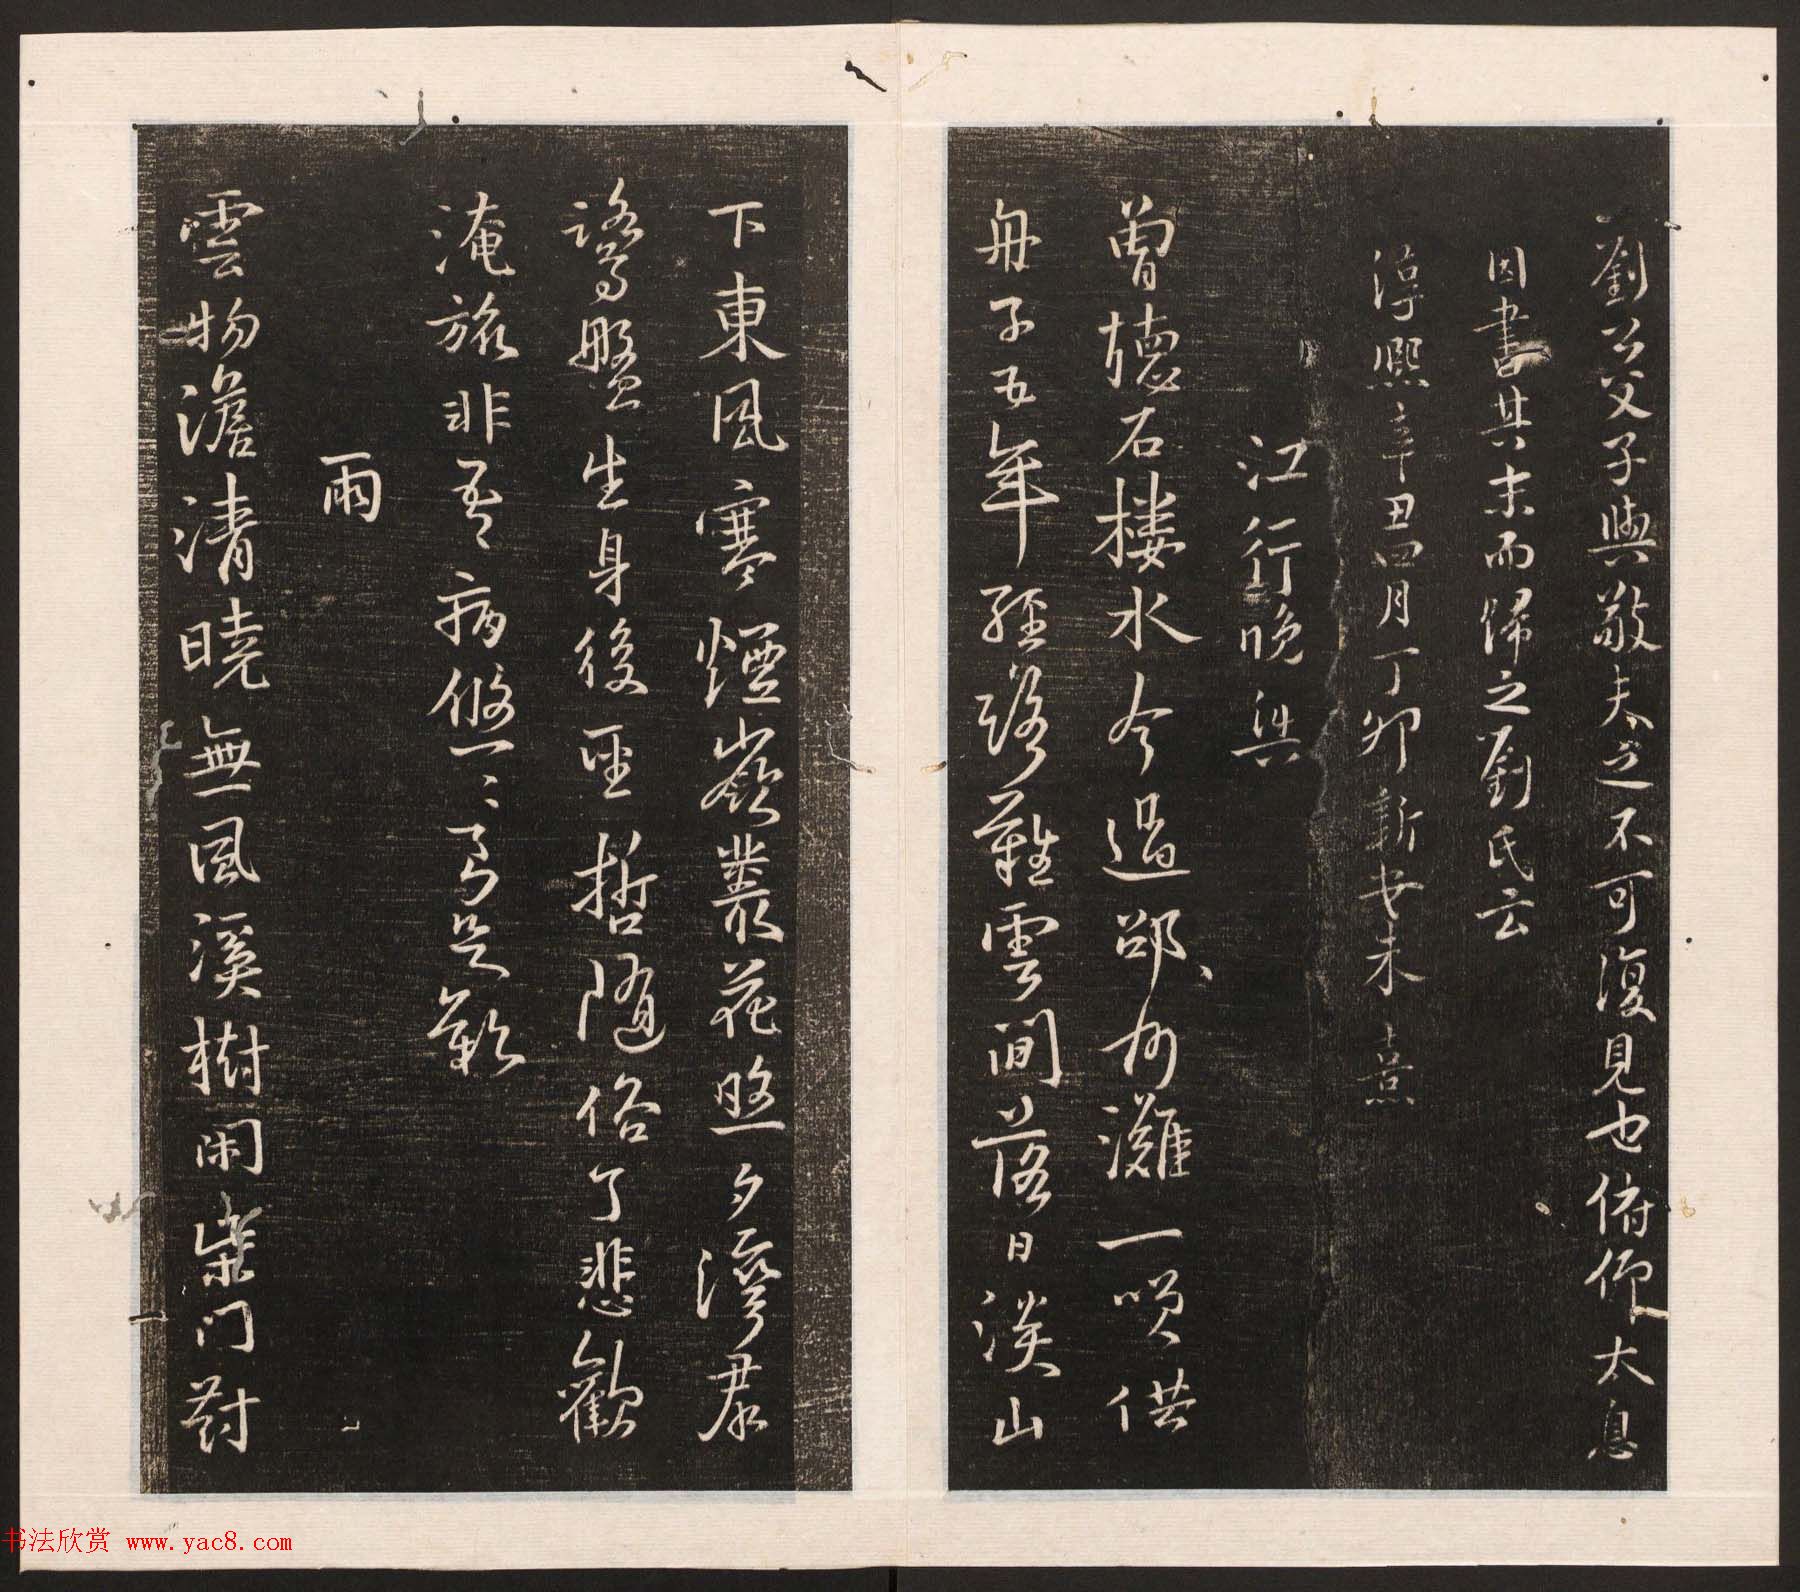 劉公父子與敬夫之不可復見也俯仰太息
因書其末而歸之劉氏云
淳熙辛丑四月丁卯新安朱熹
江行晚興
曾聽石樓水今過邵州灘一笑供
舟子五年經路難雲間落日淡山
下東風寒煙嶺叢花照夕灣羣
鷺盤生身後聖哲隨俗了悲歡
淹旅非吾病悠悠良足歎
雨
雲物澹清曉無風溪樹閑柴門對
书法欣赏 www.yac8.com